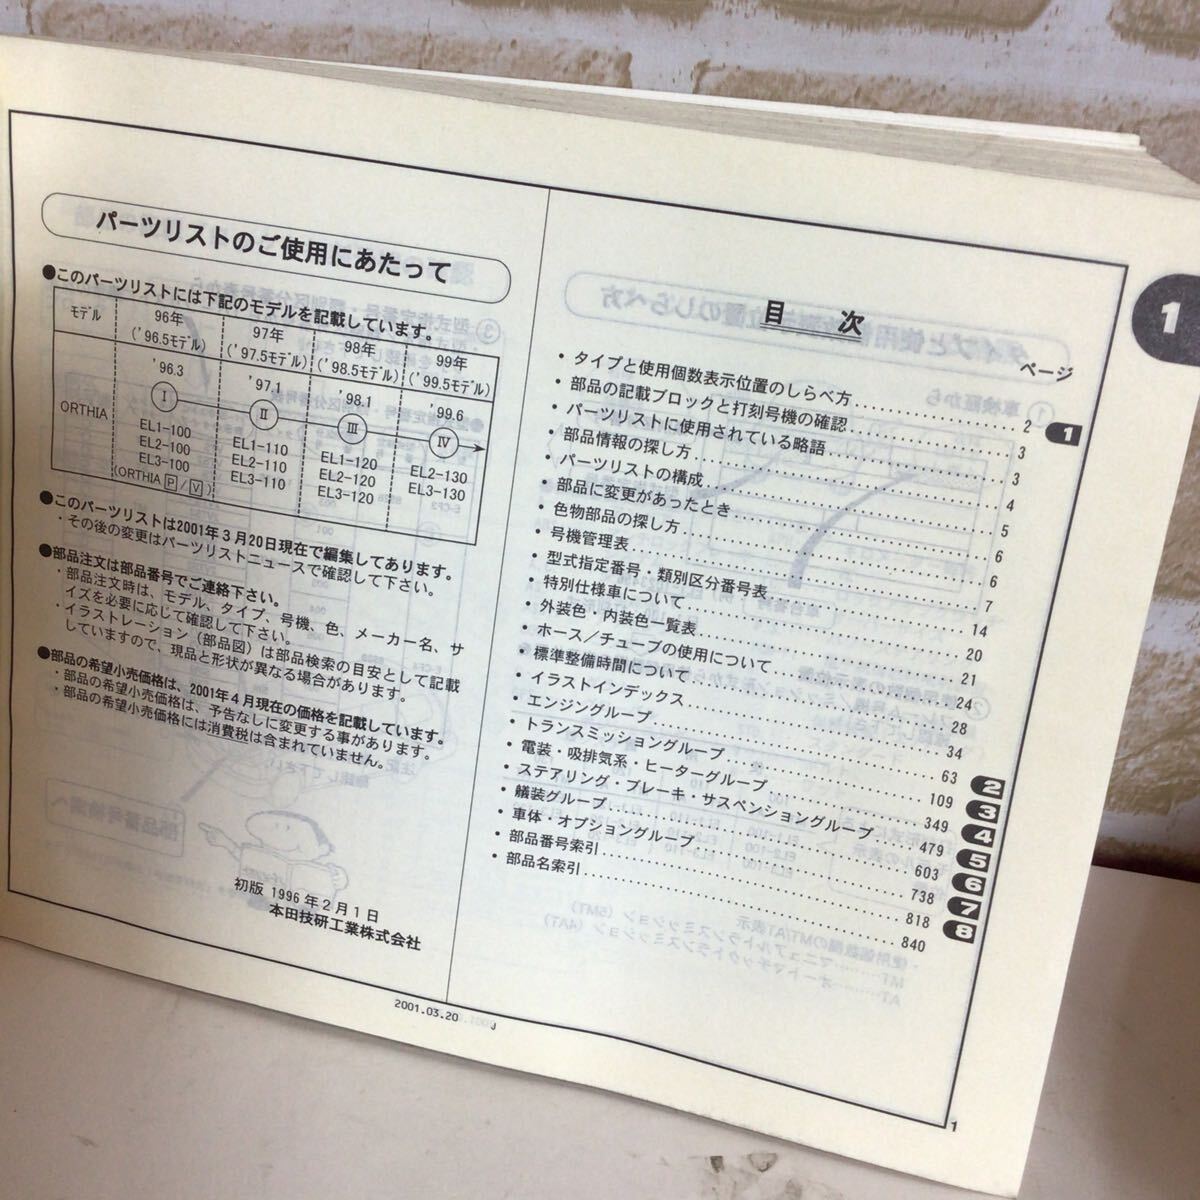 パーツリストのご使用にあたって
●このパーツリストには下記のモデルを記載しています。
モデル 96年 ('96.5モデル) 97年 ('97.5モデル) 98年 ('98.5モデル) 99年 ('99.5モデル)
ORTHIA
'96.3 '97.1 '98.1 '99.6
Ⅰ Ⅱ Ⅲ Ⅳ
EL1-100 EL1-110 EL1-120 EL2-130
EL2-100 EL2-110 EL2-120 EL3-130
EL3-100 EL3-110 EL3-120
(ORTHIA P/V)
●このパーツリストは2001年3月20日現在で編集してあります。
・その後の変更はパーツリストニュースで確認して下さい。
●部品注文は部品番号でご連絡下さい。
・部品注文時は、モデル、タイプ、号機、色、メーカー名、サ
イズを必要に応じて確認して下さい。
・イラストレーション(部品図)は部品検索の目安として記載
していますので、現品と形状が異なる場合があります。
●部品の希望小売価格は、2001年4月現在の価格を記載しています。
・部品の希望小売価格は、予告なしに変更する事があります。
・部品の希望小売価格には消費税は含まれていません。
初版 1996年2月1日
本田技研工業株式会社
目 次
ページ
・タイプと使用個数表示位置のしらべ方 2 1
・部品の記載ブロックと打刻号機の確認 3
・パーツリストに使用されている略語 3
・部品情報の探し方 4
・パーツリストの構成 5
・部品に変更があったとき 6
・色物部品の探し方 6
・号機管理表 7
・型式指定番号・類別区分番号表 14
・特別仕様車について 20
・外装色・内装色一覧表 21
・ホース/チューブの使用について 24
・標準整備時間について 28
・イラストインデックス 34
・エンジングループ 63 2
・トランスミッショングループ 109 3
・電装・吸排気系・ヒーターグループ 349 4
・ステアリング・ブレーキ・サスペンショングループ 479 5
・艤装グループ 603 6
・車体・オプショングループ 738 7
・部品番号索引 818 8
・部品名索引 840
2001.03.20 J
1
1